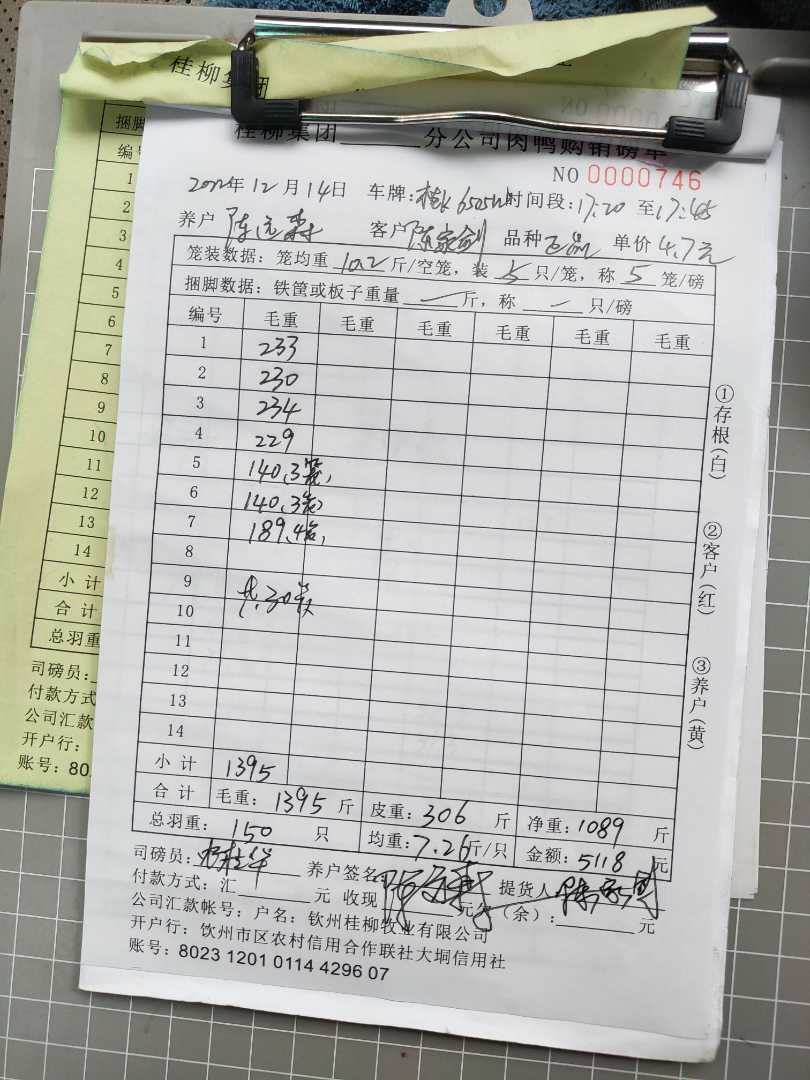 桂柳集团
桂柳集团______分公司肉鸭购销磅单
NO 0000746
2022年12月14日 车牌: 时间段:17:20 至17:45
养户 客户 陈家剑 品种 单价 4.7元
笼装数据: 笼均重 10.2 斤/空笼, 装 5 只/笼, 称 5 笼/磅
捆脚数据: 铁筐或板子重量 — 斤, 称 — 只/磅
编号 毛重 毛重 毛重 毛重 毛重 毛重
1 233
2 230
3 234
4 229
5 140.3笼,
6 140.3笼,
7 189.4笼,
8
9 共.30笼
10
11
12
13
14
小计 1395
合计 毛重: 1395 斤 皮重: 306 斤 净重: 1089 斤
总羽重: 150 只 均重: 7.26斤/只 金额: 5118 元
司磅员: 养户签名 提货人
付款方式: 汇______元 收现______元欠(余):______元
公司汇款帐号: 户名: 钦州桂柳牧业有限公司
开户行: 饮州市区农村信用合作联社大垌信用社
账号: 8023 1201 0114 4296 07
①存根(白)
②客户(红)
③养户(黄)
捆脚
编号
1
2
3
4
5
6
7
8
9
10
11
12
13
14
小计
合计
总羽重
司磅员:
付款方式
公司汇款
开户行:
账号: 80